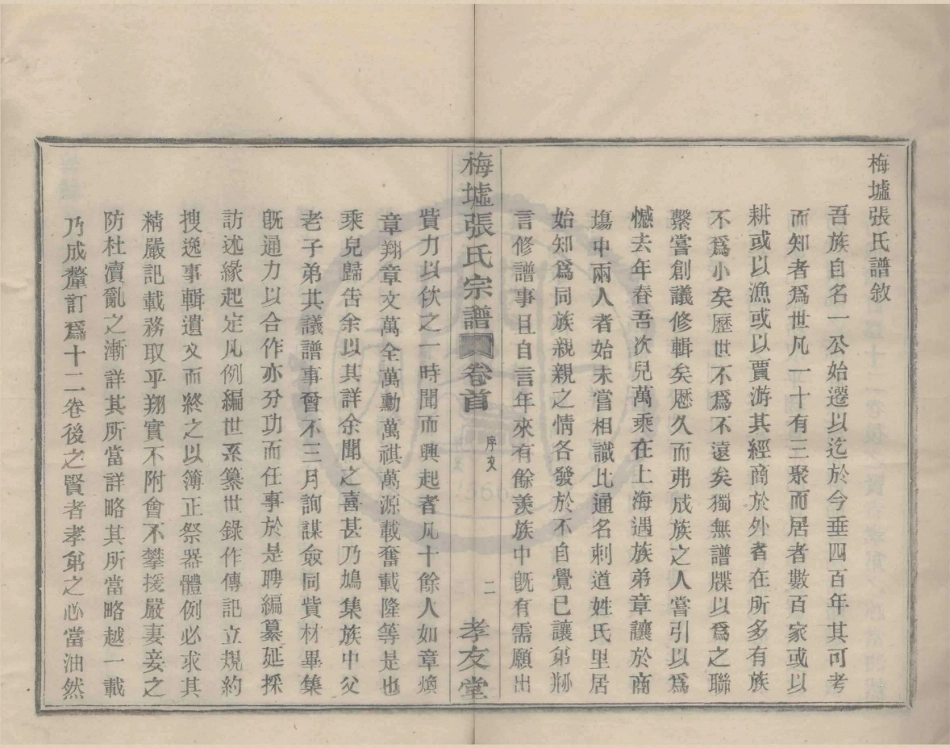 梅墟張氏譜敘
吾族自名一公始遷以迄於今垂四百年其可考
而知者爲世凡一十有三聚而居者數百家或以
耕或以漁或以賈游其經商於外者在所多有族
不爲小矣歷世不爲不遠矣獨無譜牒以爲之聯
繫嘗創議修輯矣懸久而弗成族之人嘗引以爲
憾去年春吾次兒萬乘在上海遇族弟章讓於商
塲中兩人者始未嘗相識比通名刺道姓氏里居
始知爲同族親親之情各發於不自覺已讓弟
言修譜事且自言年來有餘羡族中旣有需願出
梅墟張氏宗譜 卷首 序文 二 孝友堂
貲力以佽之一時聞而興起者凡十餘人如章煥
章翔章文萬全萬勳萬祺萬源載奮載隆等是也
乘兒歸告余以其詳余聞之喜甚乃鳩集族中父
老子弟共議譜事晉不三月詢謀僉同貲材畢集
旣通力以合作亦分功而任事於是聘編纂延採
訪述緣起定凡例編世系纂世錄作傳記立規約
搜逸事輯遺文而終之以簿正祭器體例必求其
精嚴記載務取乎翔實不附會不攀援嚴妻妾之
防杜瀆亂之漸詳其所當詳略其所當略越一載
乃成釐訂爲十二卷後之賢者孝弟之心當油然